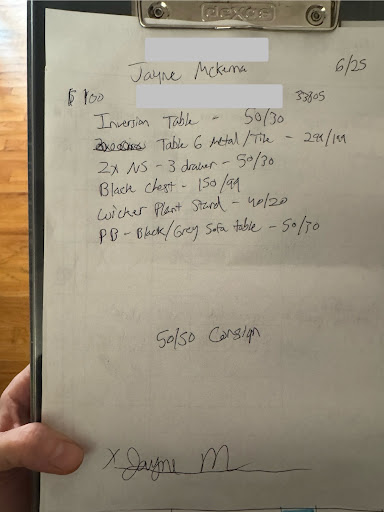 Jayne McKenna 6/25
$100 33805
Inversion Table - 50/30
Table 6 Metal/Tile - 299/199
2x NS - 3 drawer - 50/30
Black Chest - 150/99
Wicker Plant Stand - 40/20
PB - Black/Grey Sofa table - 50/30
50/50 Consign
X Jayne M